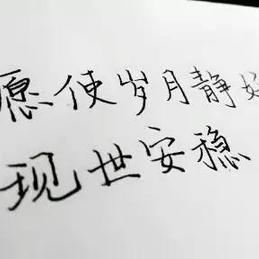 愿使岁月静好
现世安稳